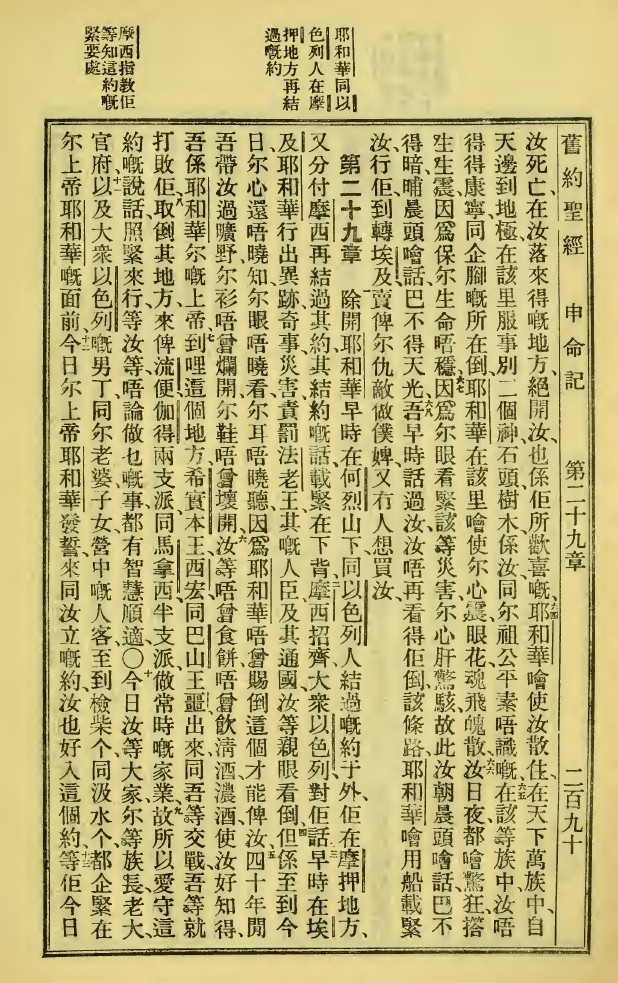 耶和華同以
色列人在摩
押地方再結
過嘅約
摩西指教佢
等知這約嘅
緊要處
舊約聖經 申命記 第二十九章 二百九十
汝死亡在汝落來得嘅地方、絕開汝、也係佢所歡喜嘅、六四耶和華噲使汝散住、在天下萬族中、自
天邊到地極、在該里服事別二個神、石頭樹木、係汝同尔祖公平素唔識嘅、六五在該等族中、汝唔
得得康寧、同企腳嘅所在、倒耶和華在該里噲使尔心震、眼花、魂飛魄散、六六汝日夜都噲驚狂、擔
生生震、因爲保尔生命唔穩、六七因爲尔眼看緊該等災害、尔心肝驚駭、故此汝朝晨頭噲話、巴不
得暗晡、晨頭噲話、巴不得天光、六八吾早時話過汝、汝唔再看得佢倒、該條路、耶和華噲用船載緊
汝、行佢到轉埃及、賣俾尔仇敵做僕婢、又冇人想買汝、
第二十九章 除開耶和華早時在何烈山下、同以色列人結過嘅約于外、佢在摩押地方、
又分付摩西再結過其約、其結約嘅話、載緊在下背、二摩西招齊大衆以色列、對佢話、早時在埃三
及、耶和華行出異跡奇事、災害責罰法老王、其嘅人臣、及其通國、汝等親眼看倒、四但係至到今
日、尔心還唔曉知、尔眼唔曉看、尔耳唔曉聽、因爲耶和華唔曾賜倒這個才能俾汝、五四十年閒
吾帶汝過曠野、尔衫唔曾爛開、尔鞋唔曾壞開、六汝等唔曾食餅、唔曾飮淸酒濃酒、使汝好知得、
吾係耶和華尔嘅上帝、七到哩這個地方、希實本王西宏、同巴山王噩、出來同吾等交戰、吾等就
打敗佢、八取倒其地方、來俾流便、伽得兩支派、同馬拿西半支派、做常時嘅家業、九故所以愛守這
約嘅說話、照緊來行、等汝等唔論做乜嘅事、都有智慧順適、〇十今日汝等大家、尔等族長、老大、
官府、以及大衆以色列嘅男丁、十一同尔老婆子女、營中嘅人客、至到檢柴个、同汲水个、都企緊在
尔上帝耶和華嘅面前、十二今日尔上帝耶和華發誓來同汝立嘅約、汝也好入這個約、十三等佢今日